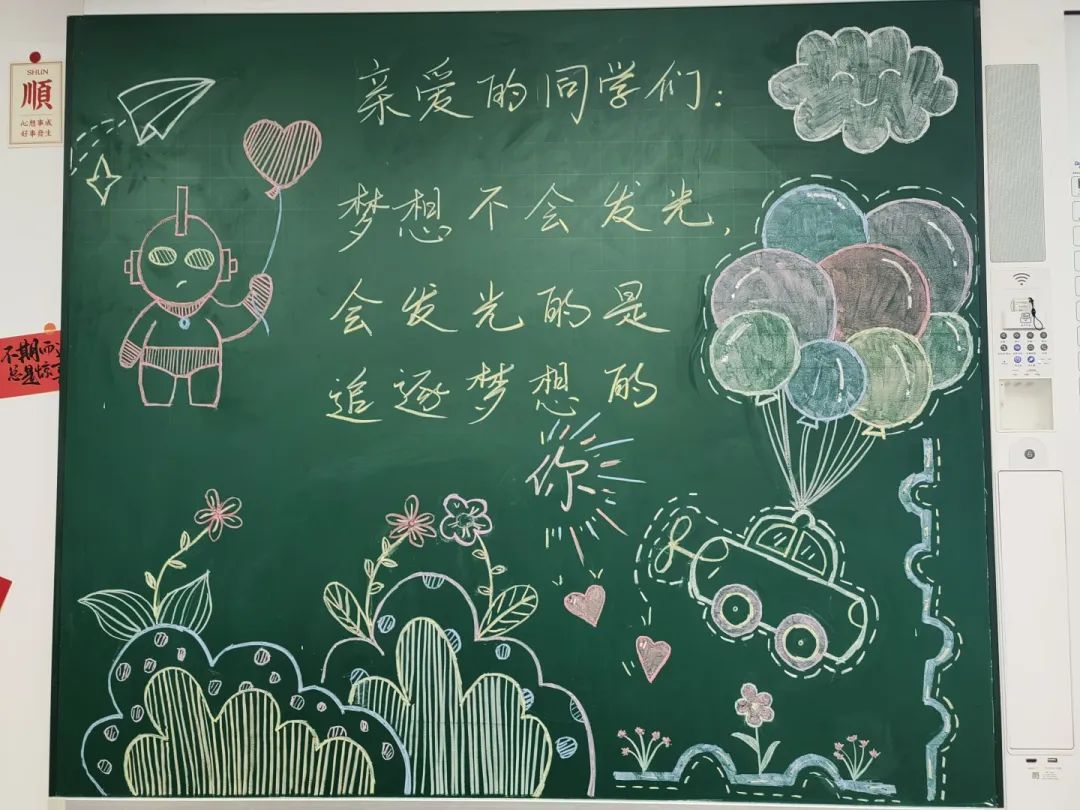 亲爱的同学们：
梦想不会发光，
会发光的是
追逐梦想的
你
SHUN
順
心想事成
好事發生
不期而
总是惊